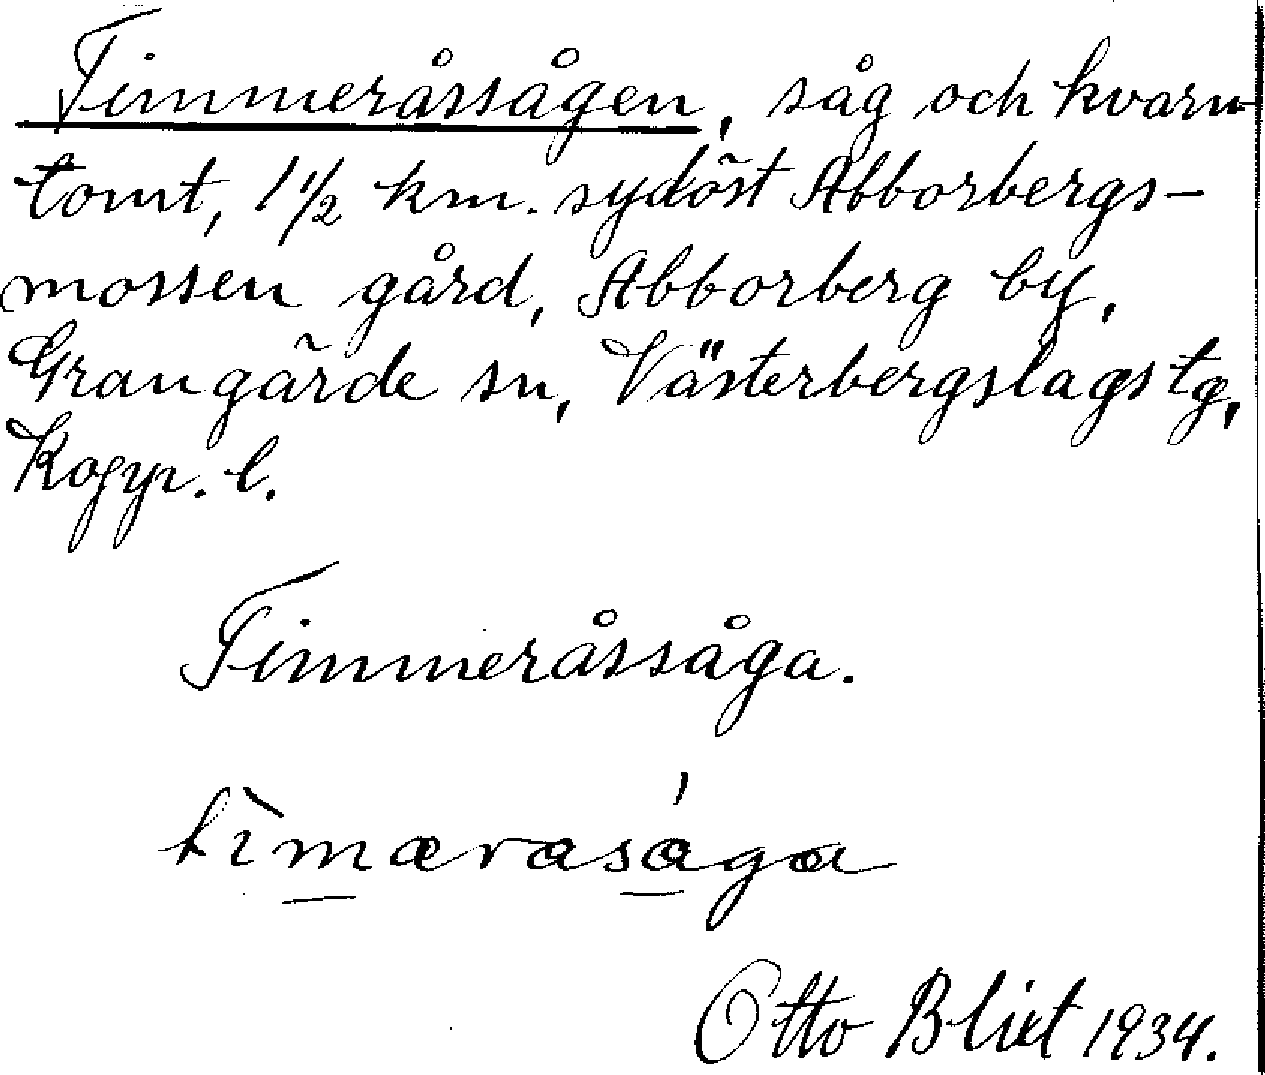 Timmeråssågen, såg och kvarn-
tomt, 1 1/2 km. sydöst Abborbergs-
mossen gård, Abborberg by,
Grangärde sn, Västerbergslags tg,
Kopp. l.
Timmeråssåga.
Otto Blixt 1934.